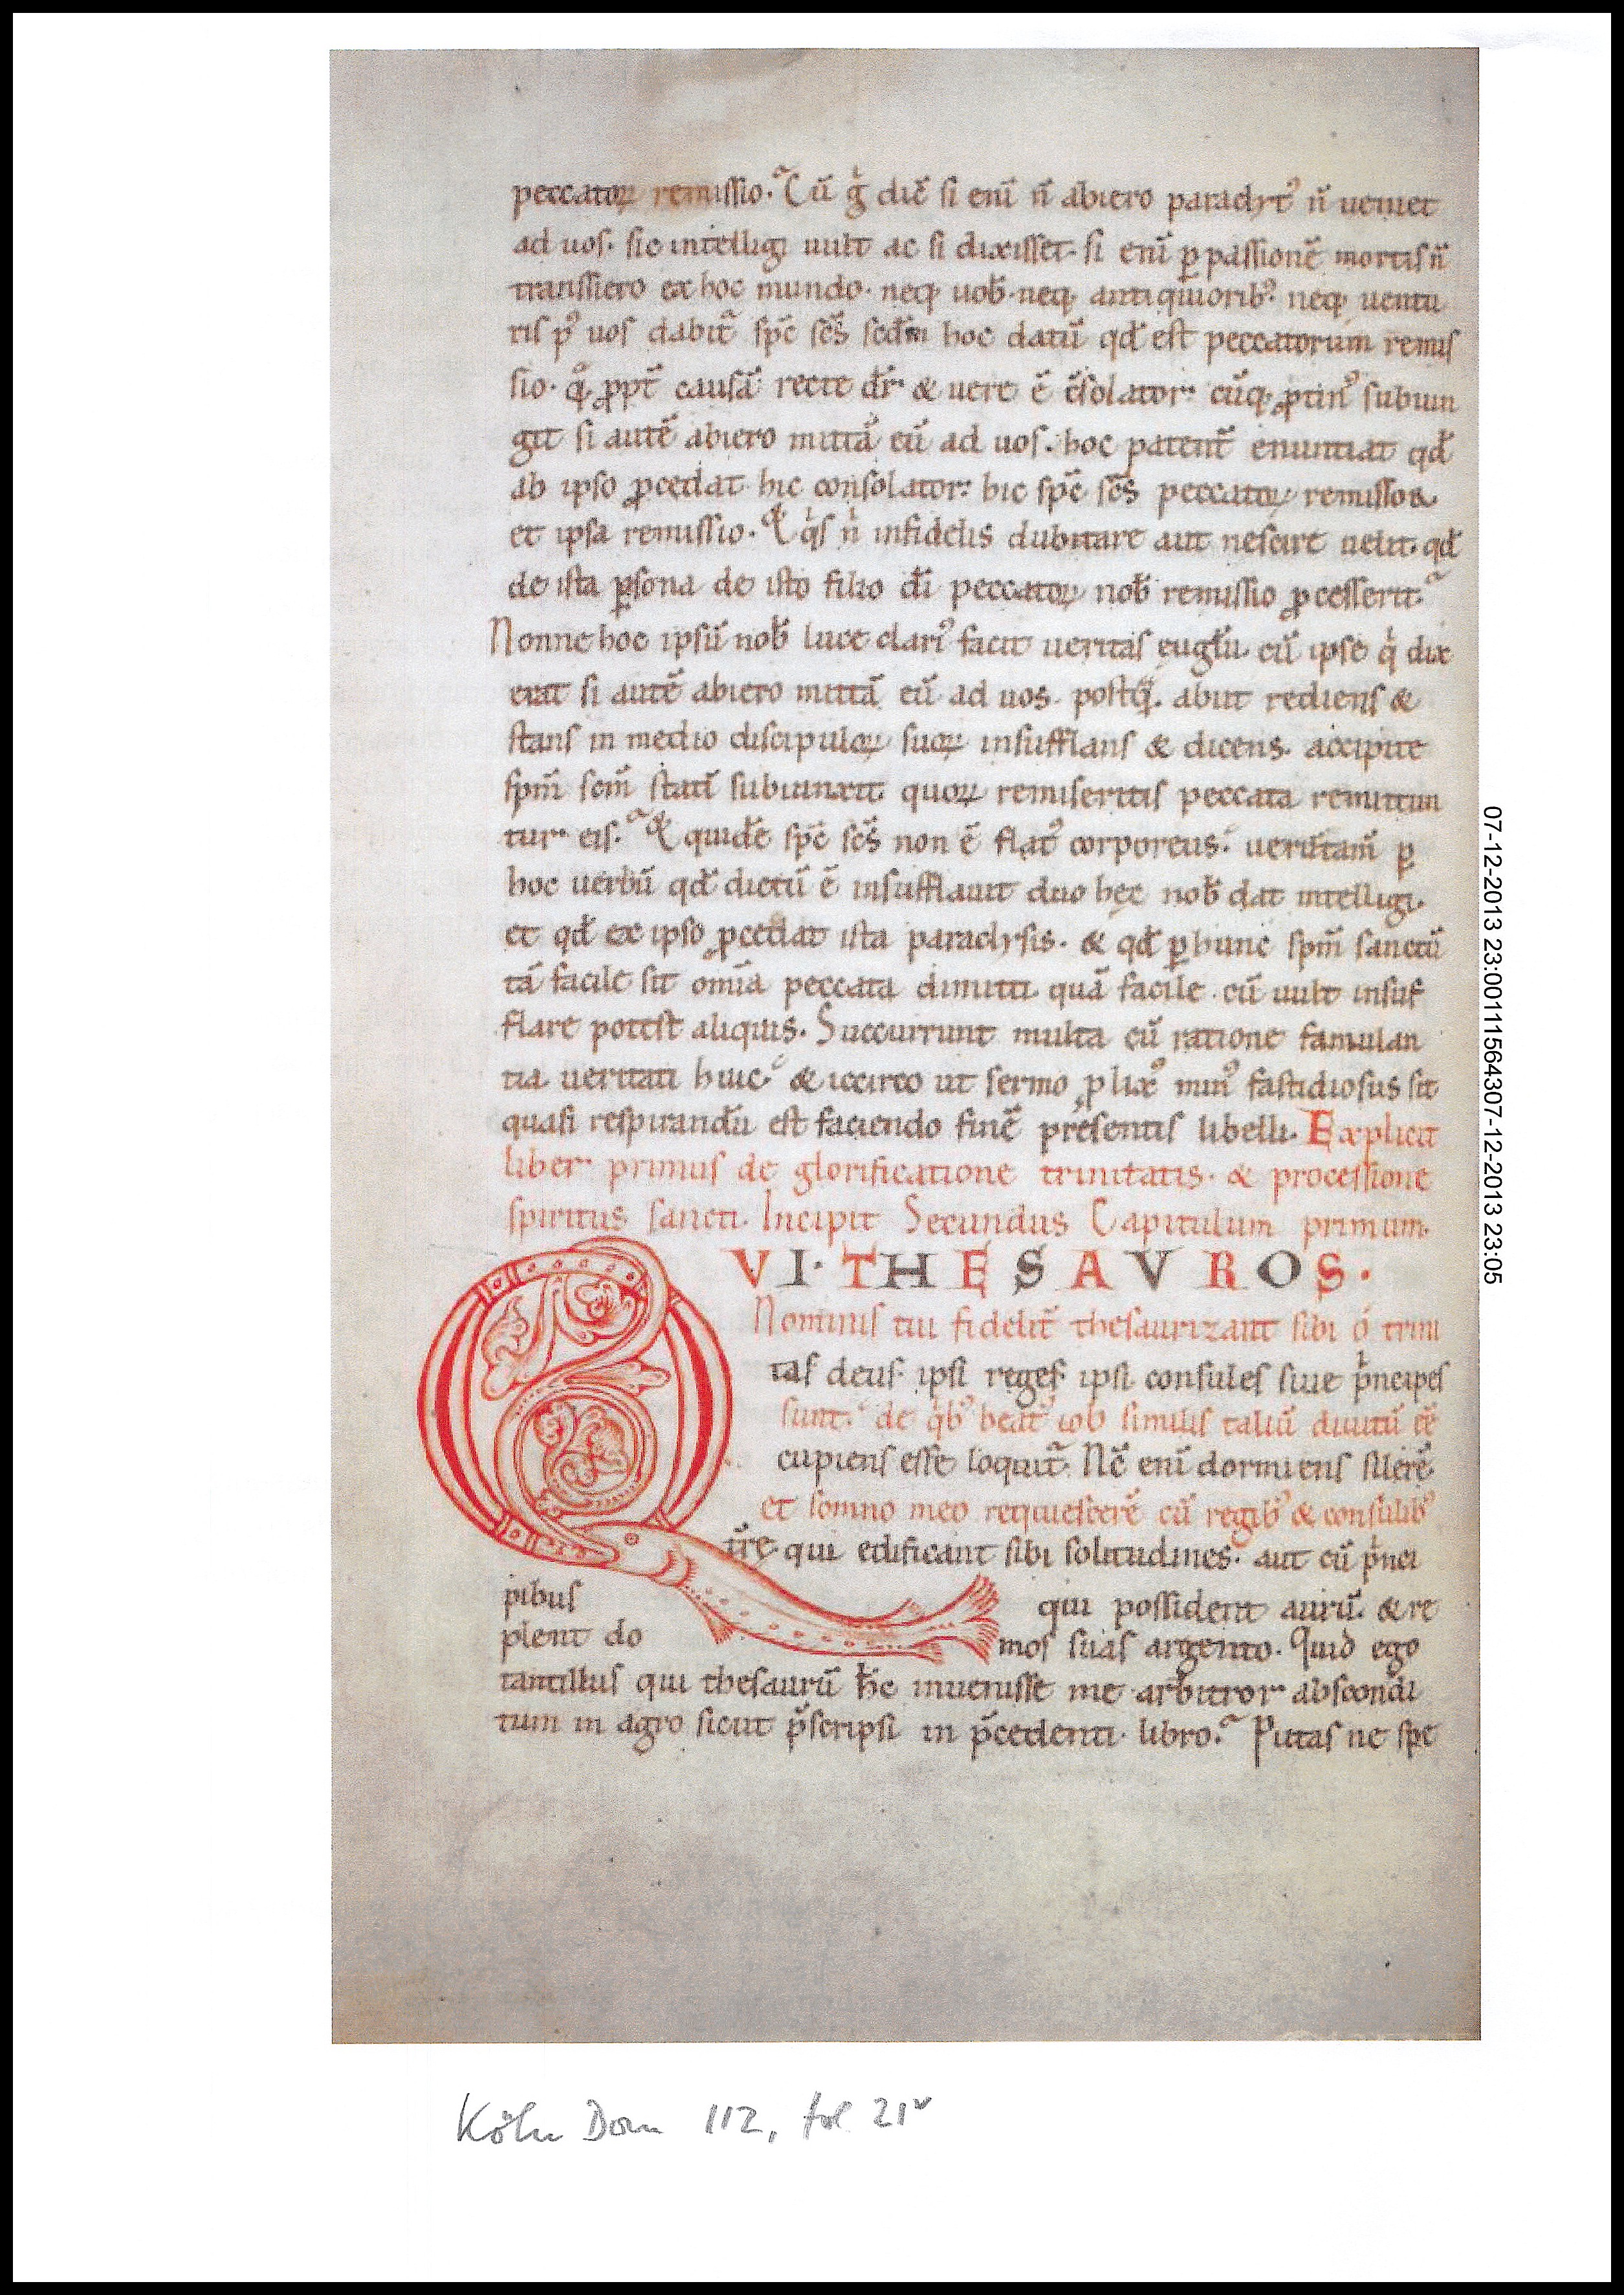 peccatoꝝ remissio. Cū g̊ dic̄ si enī n̄ abiero paraclyt᷒ n̄ ueniet
ad uos. sic intelligi uult ac si dixisset. si enī ꝑ passionē mortis n̄
transiero ex hoc mundo. neq; uob̄. neq; antiquiorib᷒. neq; uentu
ris p᷒ uos dabit᷑ sp̄c sc̄s scd̄m hoc datū qd̄ est peccatorum remis
sio. ꝓpt̄ causā recte dr̄. & uere ē c̄solator. cūq; ꝓtin᷒ subiun
git si autē abiero mittā eū ad uos. hoc patent̄ enuntiat qd̄
ab ipso ꝓcedat hic consolator. hic sp̄c sc̄s peccatoꝝ remissor
et ipsa remissio. Et qͥs n̄ infidelis dubitare aut nescire uelit. qd̄
de ista ꝑsona de isto filio dī peccatoꝝ nob̄ remissio ꝓcesserit
Nonne hoc ipsū nob̄ luce clari᷒ facit ueritas eugl̄ii cū ipse qͥ dix
erat si autē abiero mittā eū ad uos. postq̄. abiit rediens &
stans in medio discipuloꝝ suoꝝ insufflans & dicens. accipite
sp̄m sc̄m statī subiunxit. quoꝝ remiseritis peccata remittun
tur eis. Et quidē sp̄c sc̄s non ē flat᷒ corporeus. uerūtam̄ ꝑ
hoc uerbū qd̄ dictū ē insufflauit duo hęc nob̄ dat intelligi.
et qd̄ ex ipso ꝓcedat ista paraclysis. & qd̄ ꝑ hunc sp̄m sanctū
tā facile sit om̄ia peccata dimitti quā facile cū uult insuf
flare potest aliquis. Succurrunt multa cū ratione famulan
tia ueritati huic. & iccirco ut sermo ꝓlix᷒ min᷒ fastidiosus sit
quasi respirandū est faciendo finē presentis libelli. Explicit
liber primus de glorificatione trinitatis. & processione
spiritus sancti. Incipit Secundus Capitulum primum.
QVI. THESAVROS.
Nominis tui fidelit̄ thesaurizant sibi ó trini
tas deus. ipsi reges ipsi consules siue pͥncipes
sunt. de qͥb᷒ beat᷒ iob similis taliū diuitū ēē
cupiens esse loquit᷑. Nc̄ enī dormiens silerē
et somno meo requiescerē cū regib᷒ & consulib᷒
tr̄e qui edificant sibi solitudines. aut cū pͥnci
pibus qui possident aurū. & re
plent domos suas argento. Quid ego
tantillus qui thesaurū h̄c inuenisse me arbitror abscondi
tum in agro sicut p̄scripsi in p̄cedenti libro. Putas ne spe
07-12-2013 23:0011564307-12-2013 23:05
Köln Dom 112, fol 21v